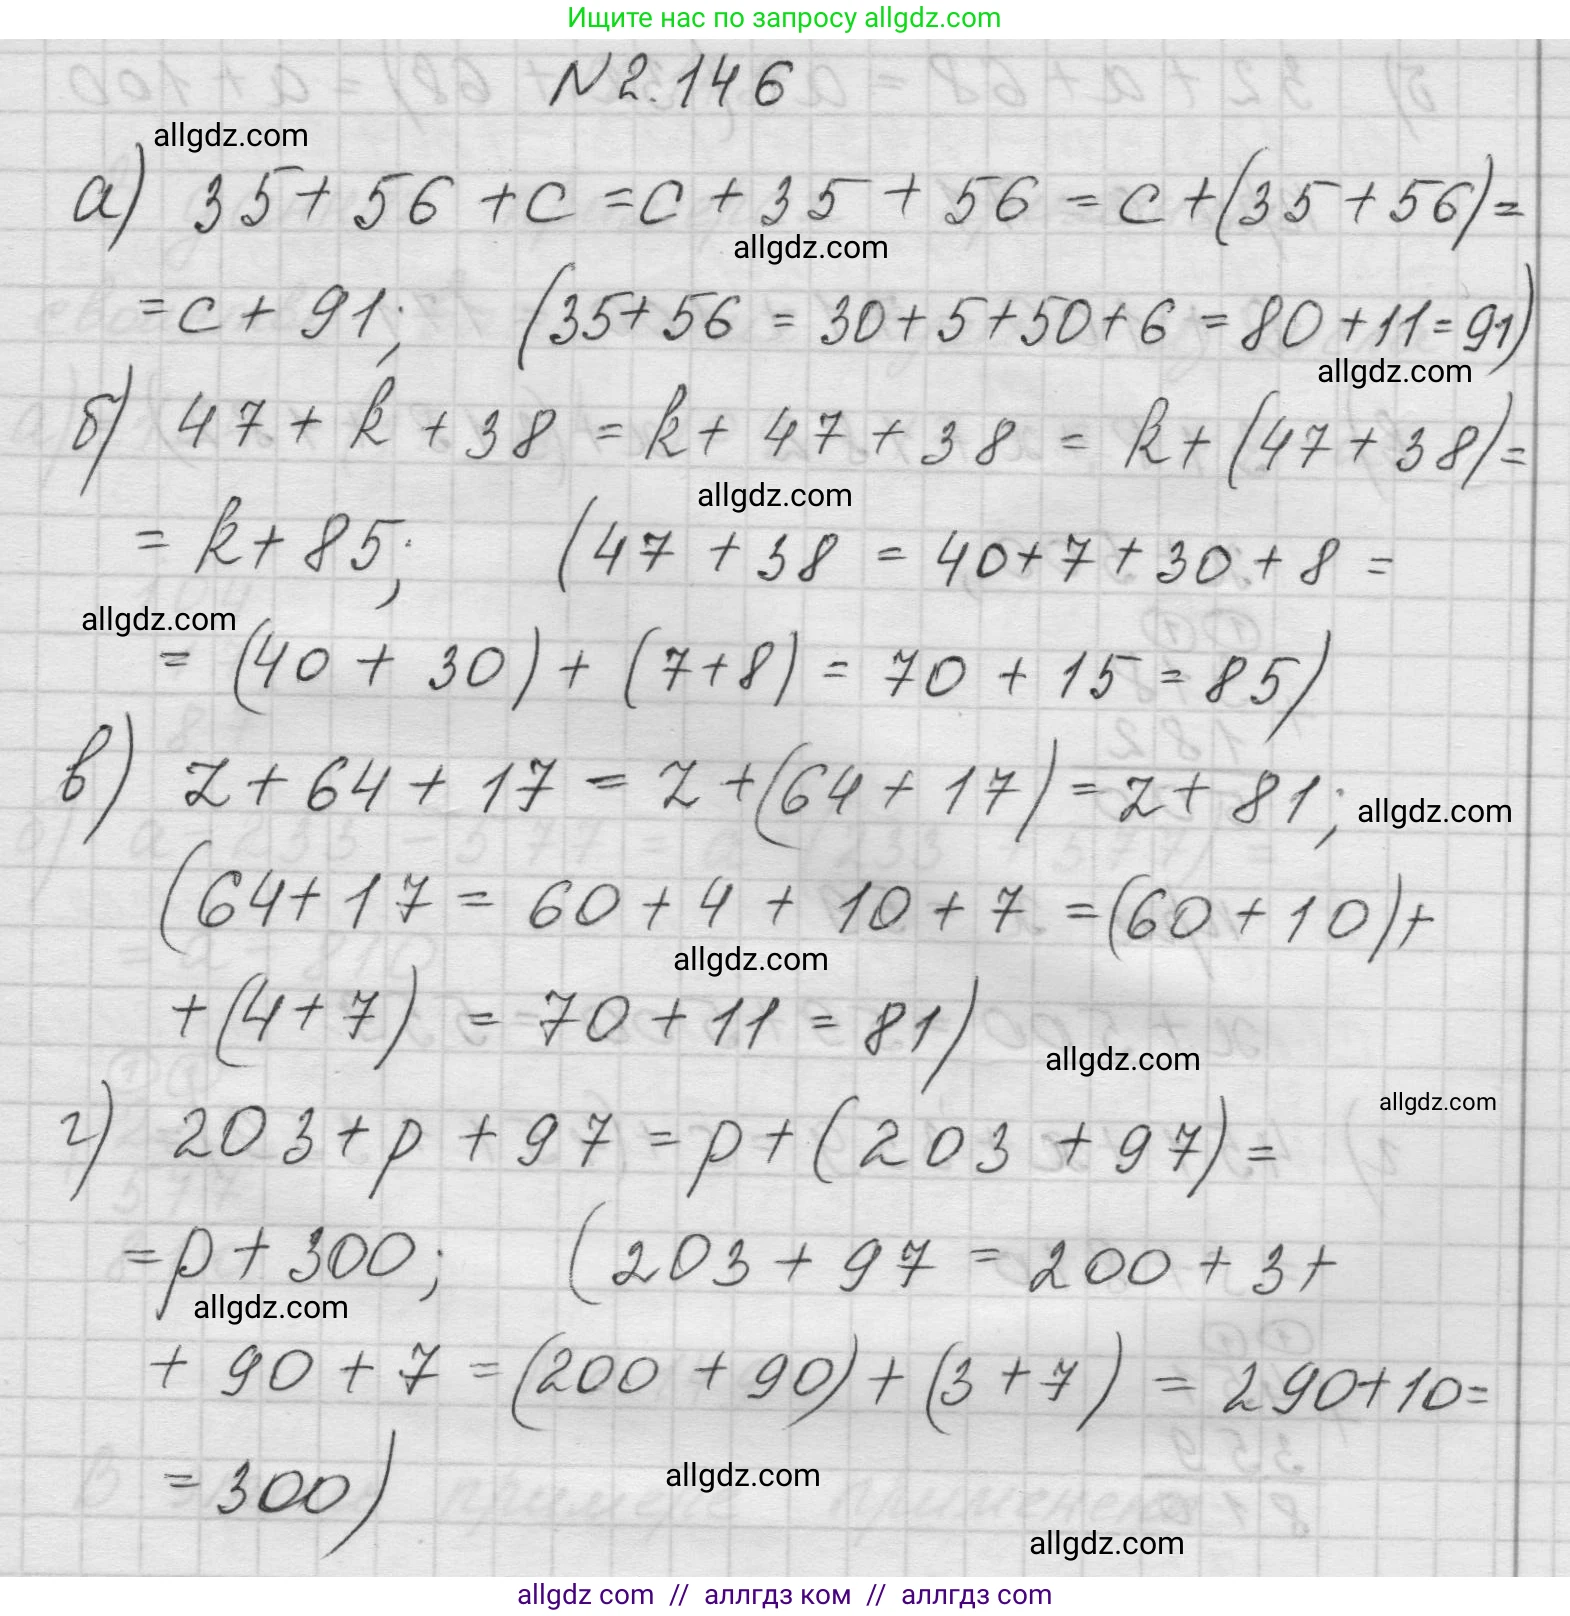 Ищите нас по запросу allgdz.com
N 2.146
allgdz.com
а) 35 + 56 + c = c + 35 + 56 = c + (35 + 56) =
allgdz.com
= c + 91; (35 + 56 = 30 + 5 + 50 + 6 = 80 + 11 = 91)
allgdz.com
б) 47 + k + 38 = k + 47 + 38 = k + (47 + 38) =
allgdz.com
= k + 85; (47 + 38 = 40 + 7 + 30 + 8 =
allgdz.com
= (40 + 30) + (7 + 8) = 70 + 15 = 85)
в) z + 64 + 17 = z + (64 + 17) = z + 81;
allgdz.com
(64 + 17 = 60 + 4 + 10 + 7 = (60 + 10) +
allgdz.com
+ (4 + 7) = 70 + 11 = 81)
allgdz.com
allgdz.com
г) 203 + p + 97 = p + (203 + 97) =
= p + 300; (203 + 97 = 200 + 3 +
allgdz.com
+ 90 + 7 = (200 + 90) + (3 + 7) = 290 + 10 =
allgdz.com
= 300)
allgdz.com
allgdz com // аллгдз ком // аллгдз com